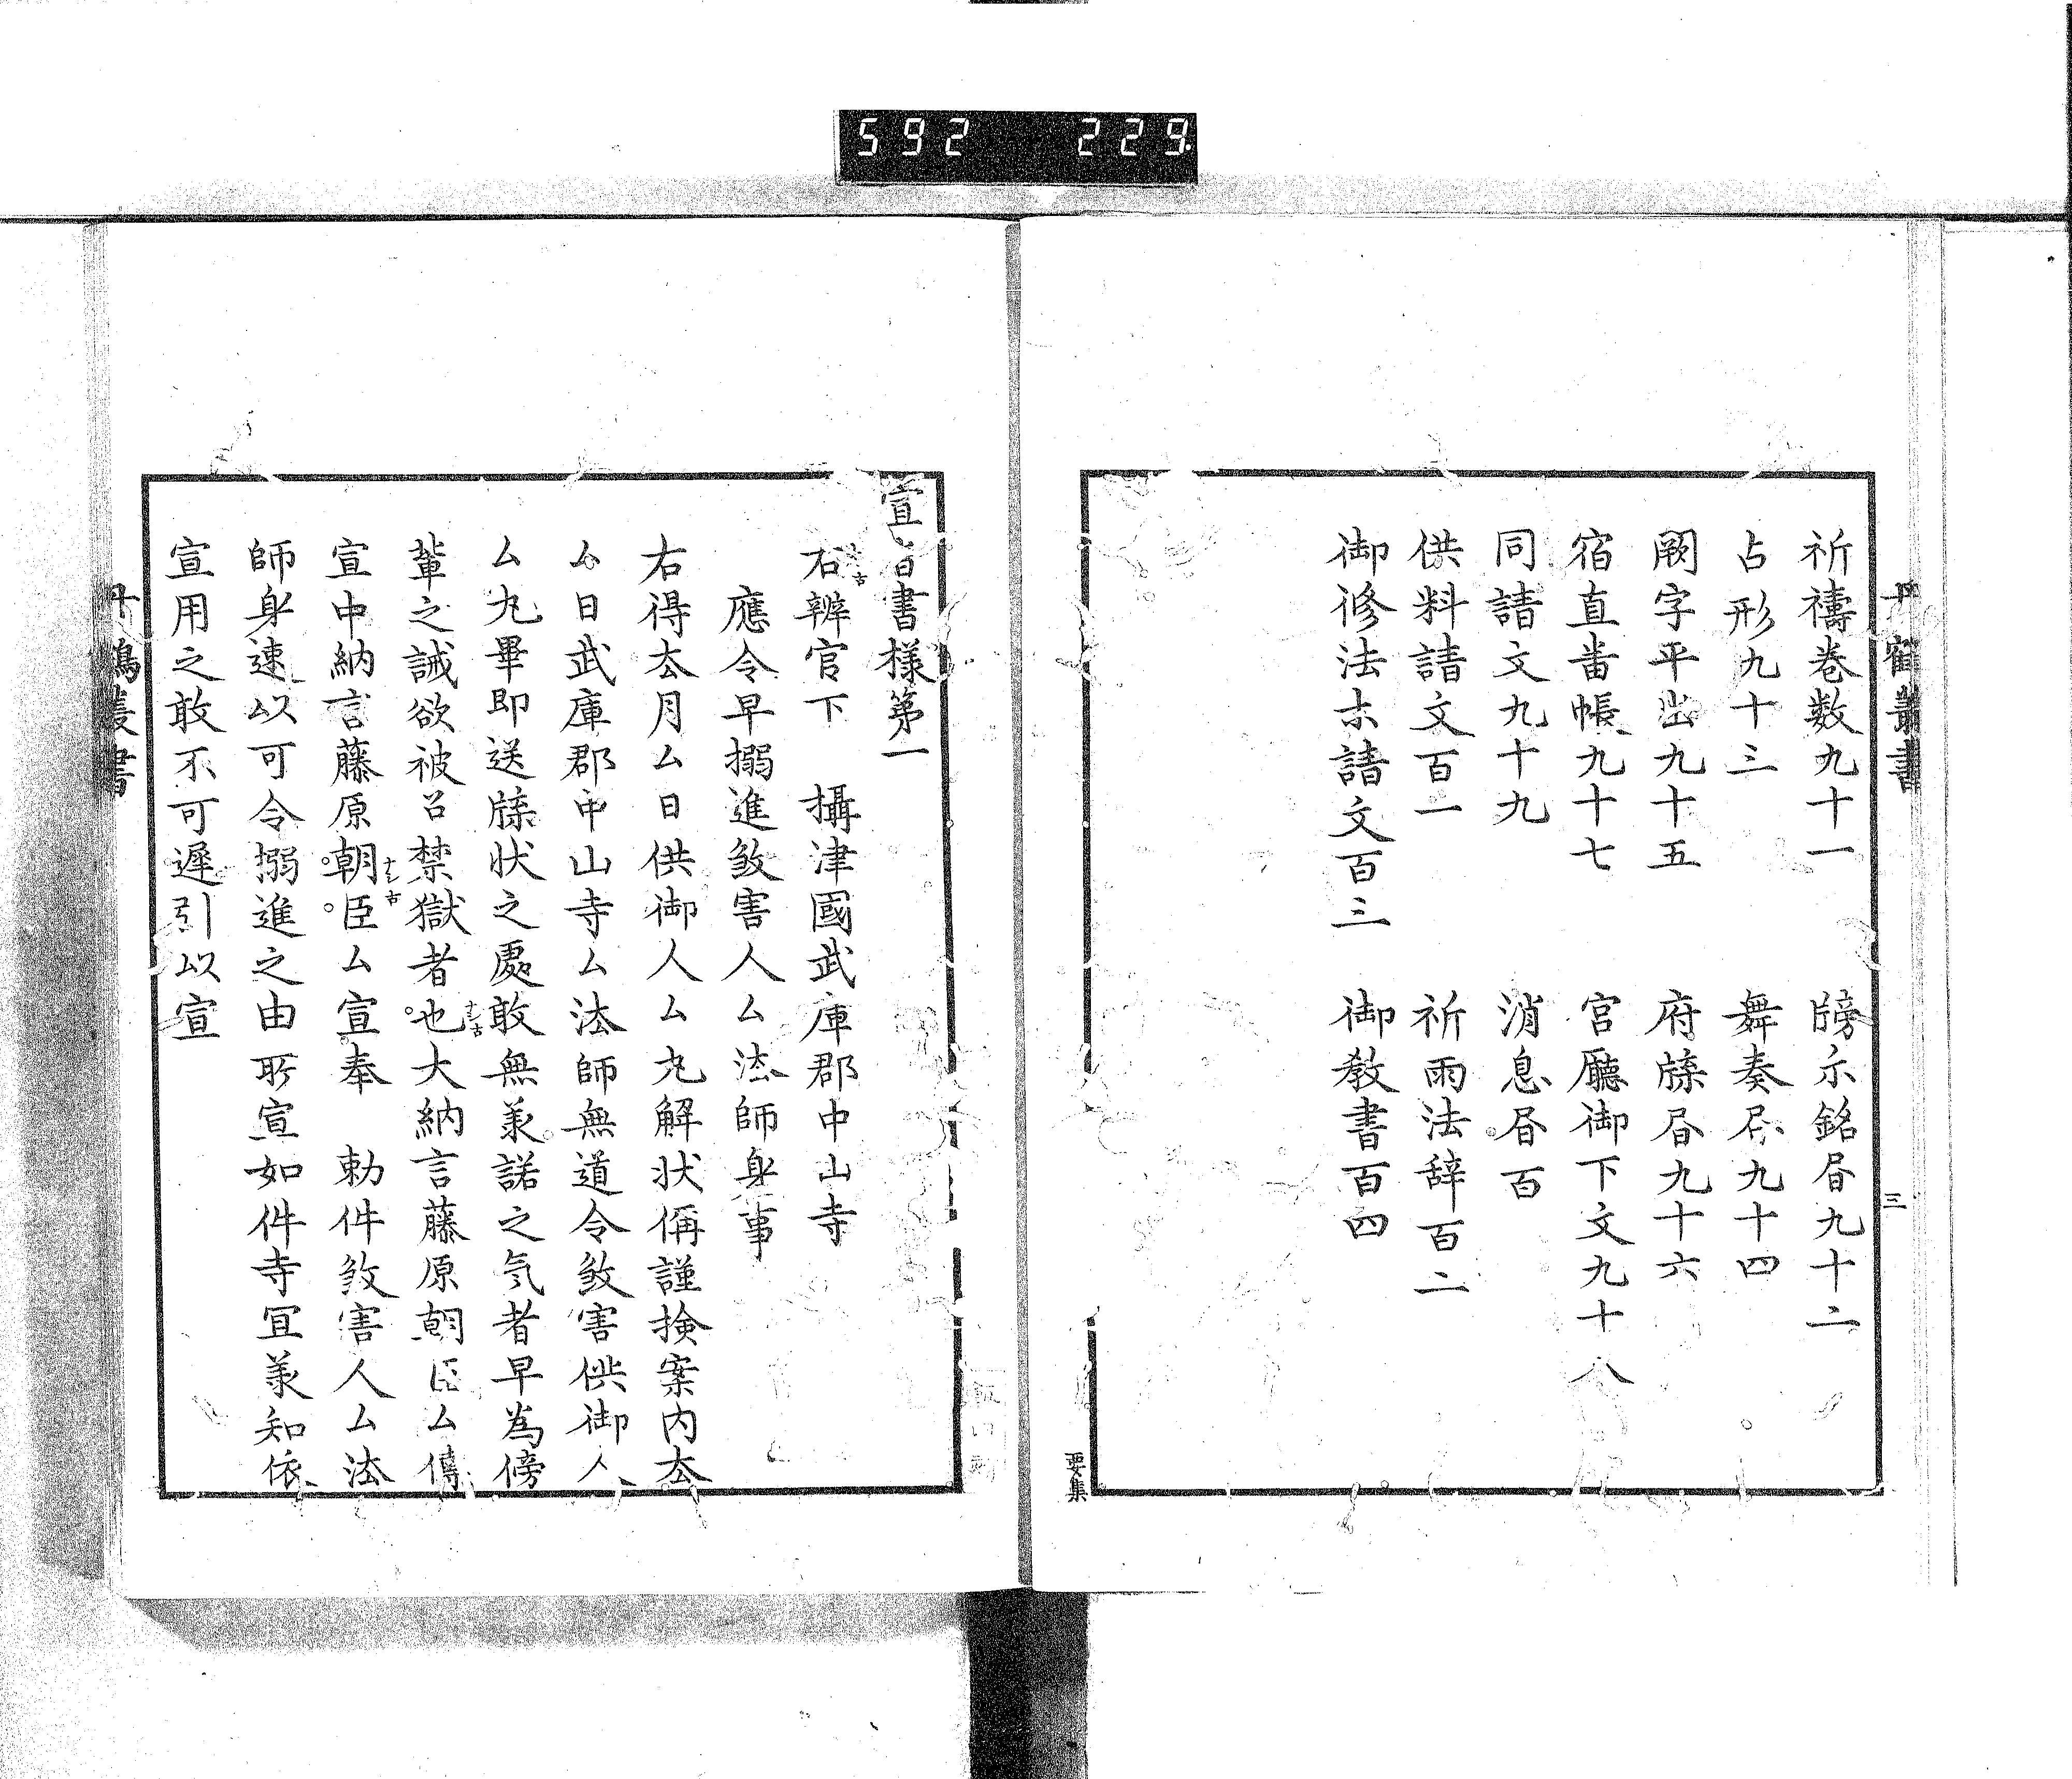 592 229
丹鶴叢書
三
祈禱巻数九十一 牓示銘㫺九十二
占形九十三 舞奏㫺九十四
闕字平出九十五 府牒㫺九十六
宿直畨帳九十七 宮廳御下文九十八
同請文九十九 消息㫺百
供料請文百一 祈雨法辞百二
御修法ホ請文百三 御教書百四
要集
宣旨書様第一
右辨官下 攝津國武庫郡中山寺
應令早搦進敓害人厶法師身事
右得去月厶日供御人厶丸解状偁謹検案内去
厶日武庫郡中山寺厶法師無道令敓害供御人
厶丸畢即送牒状之處敢無承諾之気者早為傍
輩之誡欲被召禁獄者也大納言藤原朝臣厶傳
宣中納言藤原朝臣厶宣奉 勅件敓害人厶法
師身速以可令搦進之由所宣如件寺冝承知依
宣用之敢不可遅引以宣
丹鶴叢書